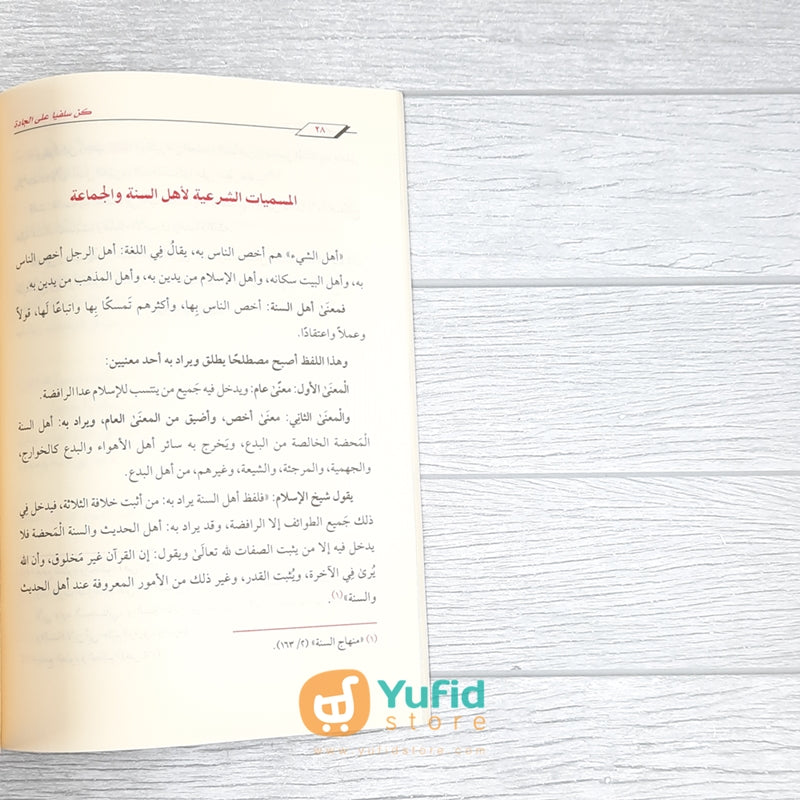 كن سلفيا على الجادة
٢٨
المسميات الشرعية لأهل السنة والجماعة
«أهل الشيء» هم أخص الناس به، يقالُ فِي اللغة: أهل الرجل أخص الناس
به، وأهل البيت سكانه، وأهل الإسلام من يدين به، وأهل المذهب من يدين به.
فمعنَىٰ أهل السنة: أخص الناس بِها، وأكثرهم تَمسكًا بِها واتباعًا لَها، قولاً
وعملاً واعتقادًا.
وهذا اللفظ أصبح مصطلحًا يطلق ويراد به أحد معنيين:
الْمعنَىٰ الأول: معنًى عام: ويدخل فيه جَميع من ينتسب للإسلام عدا الرافضة.
والْمعنَىٰ الثانِي: معنَىٰ أخص، وأضيق من المعنَىٰ العام، ويراد به: أهل السنة
الْمَحضة الخالصة من البدع، ويَخرج به سائر أهل الأهواء والبدع كالخوارج،
والجهمية، والمرجئة، والشيعة، وغيرهم، من أهل البدع.
يقول شيخ الإسلام: «فلفظ أهل السنة يراد به: من أثبت خلافة الثلاثة، فيدخل فِي
ذلك جَميع الطوائف إلا الرافضة، وقد يراد به: أهل الحديث والسنة الْمَحضة فلا
يدخل فيه إلا من يثبت الصفات لله تعالَىٰ ويقول: إن القرآن غير مَخلوق، وأن الله
يُرىٰ فِي الآخرة، ويُثبت القدر، وغير ذلك من الأمور المعروفة عند أهل الحديث
والسنة»(١).
(١) «منهاج السنة» (٢/ ١٦٣).
Yufid
store
www.yufidstore.com